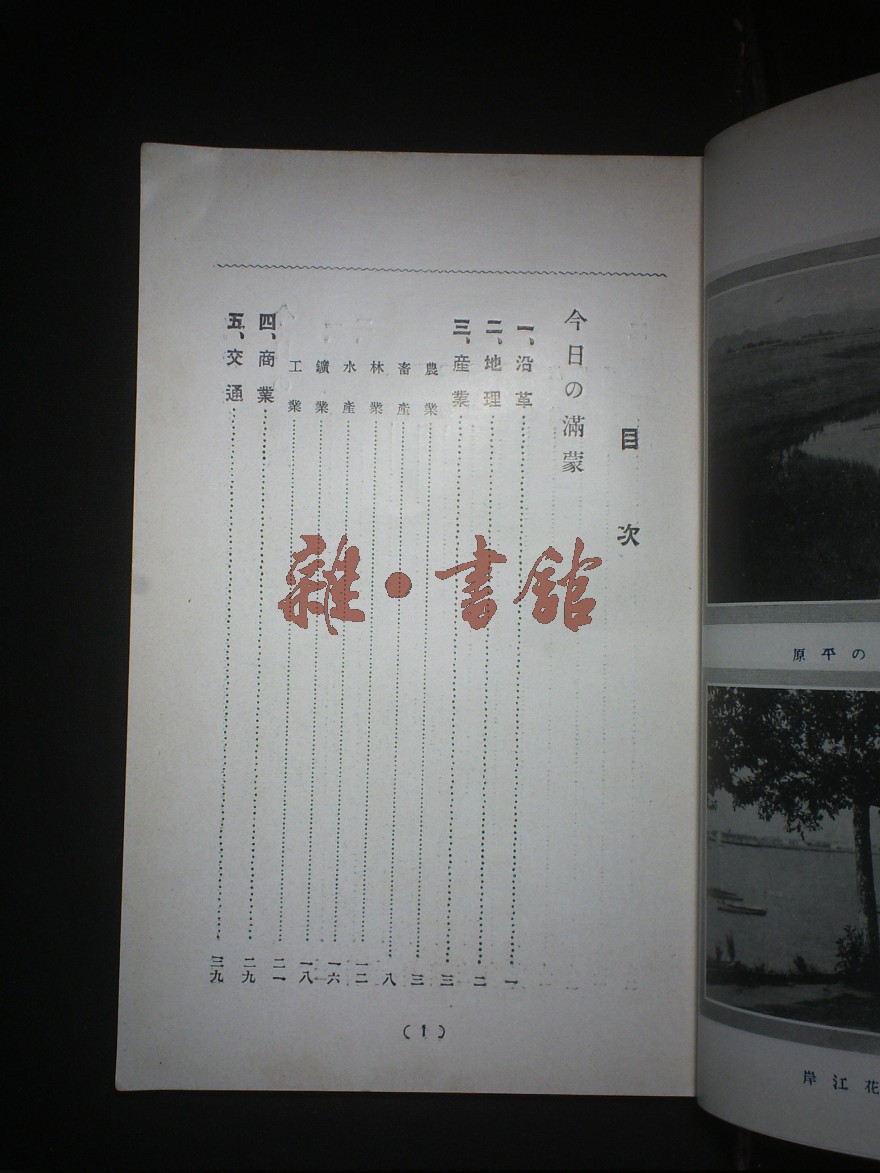 目次
今日の滿蒙
一、沿革……一
二、地理……二
三、産業……三
農業……三
畜産……八
林業……一二
水産……一六
鑛業……一八
工業……二一
四、商業……二九
五、交通……三九
(1)
の平原
花江岸
雜・書舘